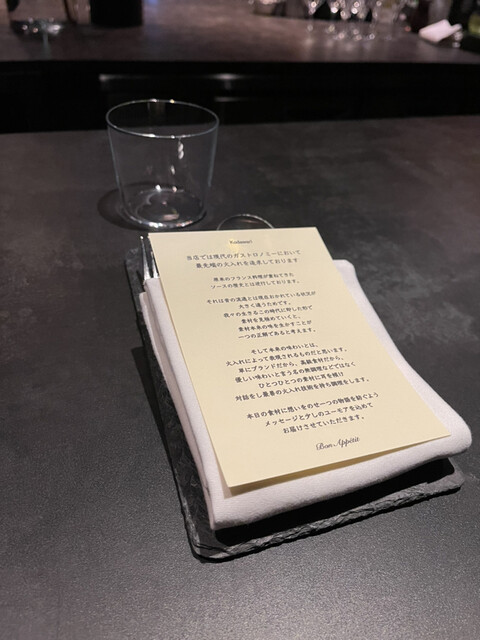 当店では現代のガストロノミーにおいて
最先端の火入れを追求しております
従来のフランス料理が重ねてきた
ソースの歴史とは逆行しております。
それは昔の流通とは現在おかれている状況が
大きく違うためです。
我々の生きるこの時代に即した形で
食材を見極めていくと、
素材本来の味を生かすことが
一つの正解であると考えます。
そして本来の味わいとは、
火入れによって表現されるものだと思います。
単にブランドだから、高級食材だから、
優しい味わいと言う名の無調理などではなく
ひとつひとつの素材に耳を傾け
対話をし最善の火入れ技術を持ち調理をします。
本日の食材に想いをのせ一つの物語を紡ぐよう
メッセージと少しのユーモアを込めて
お届けさせていただきます。
Bon Appétit